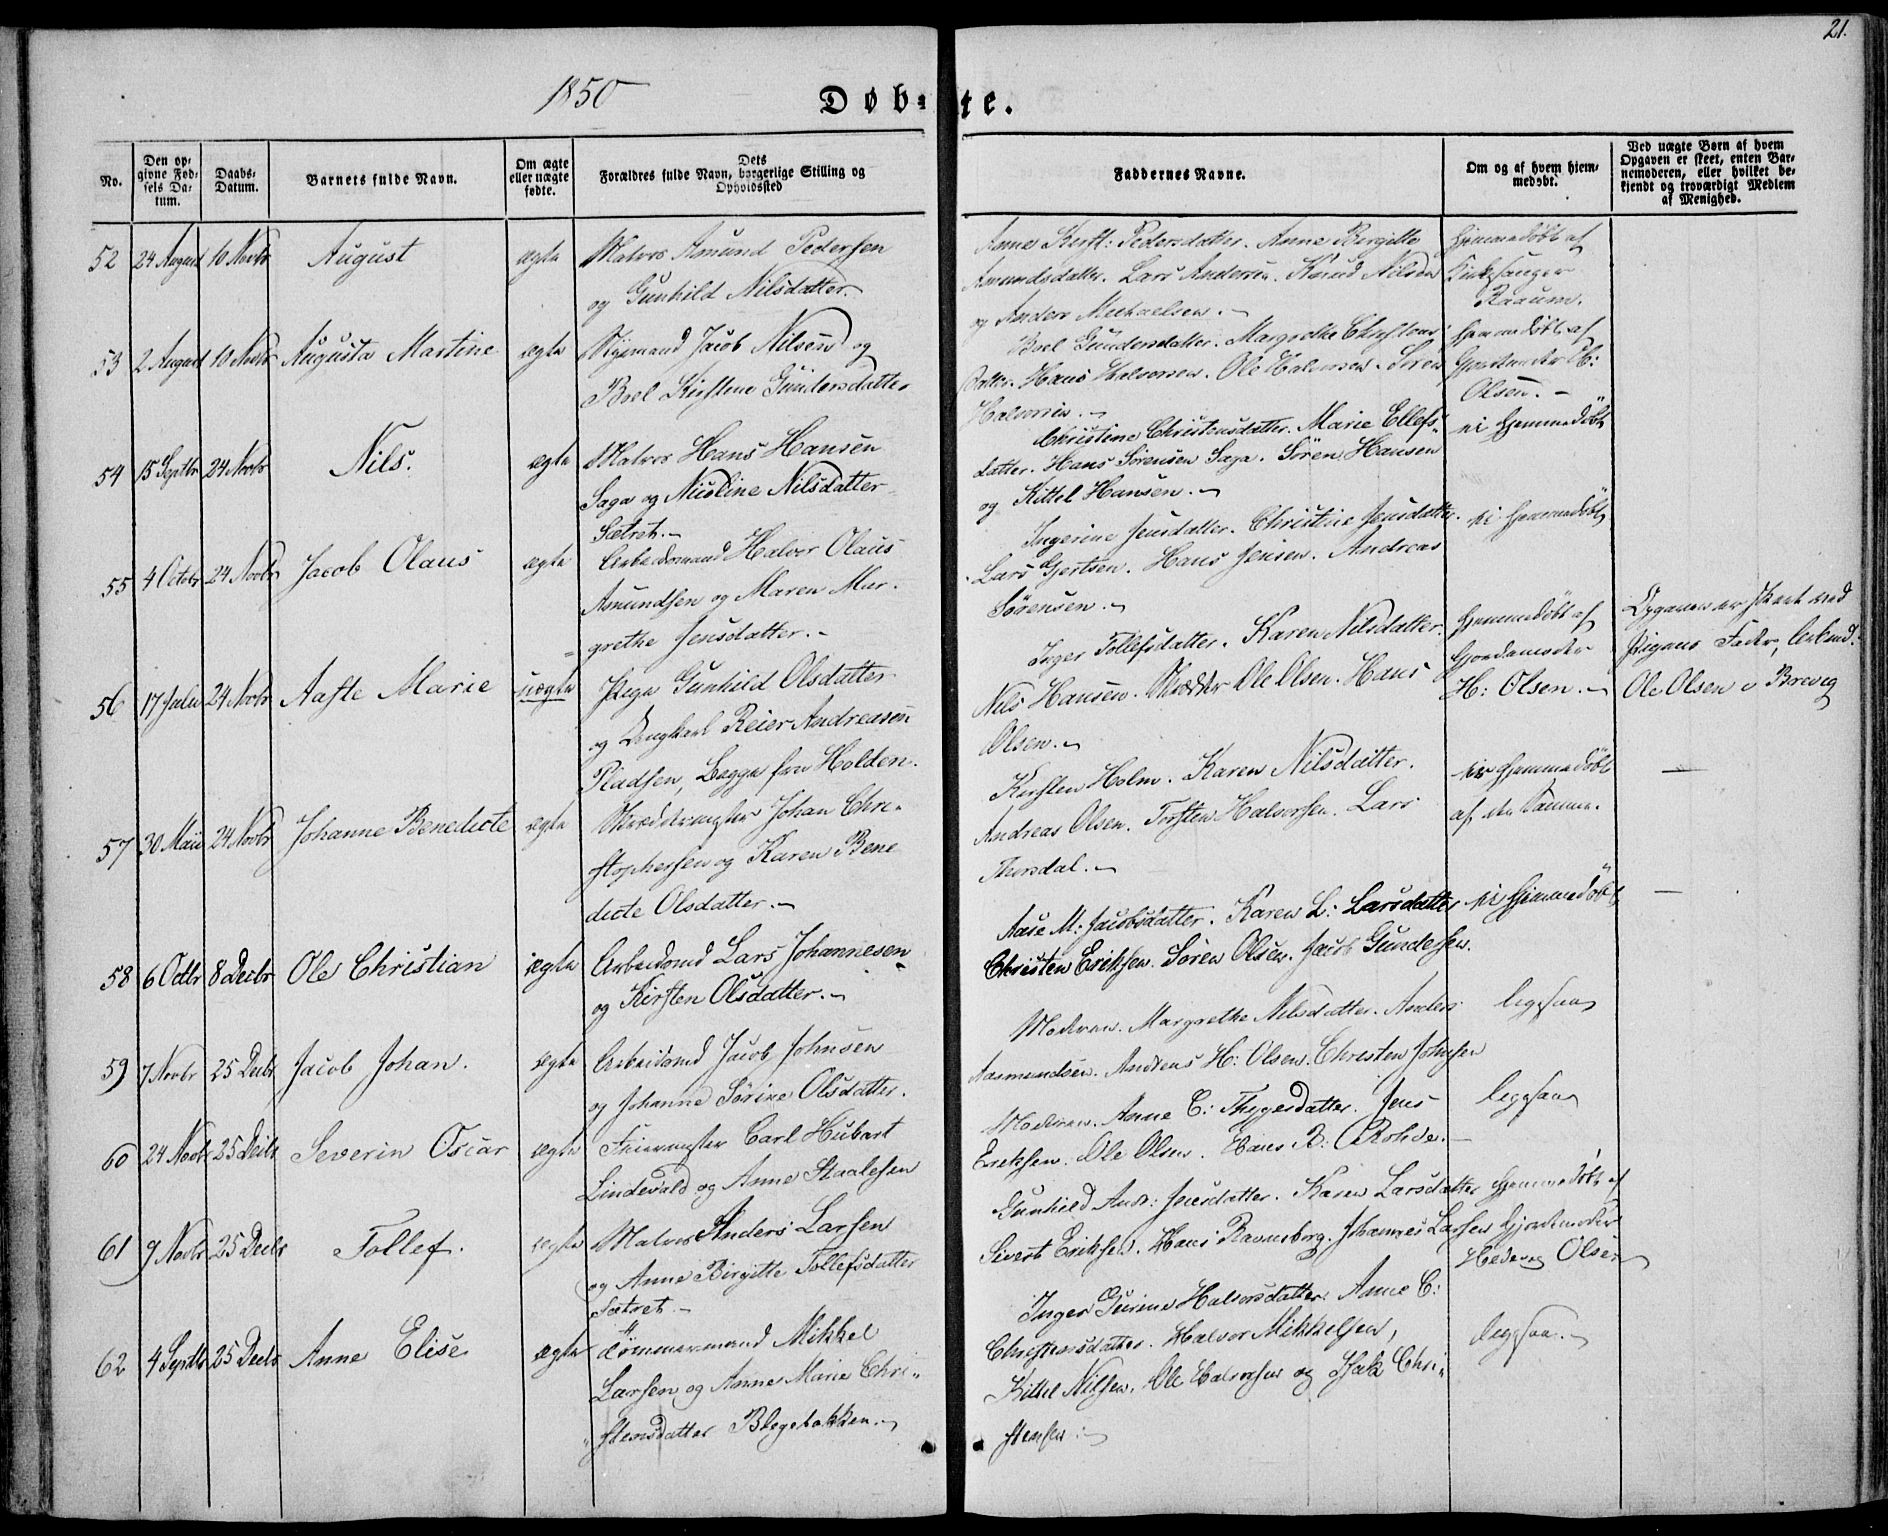 21.
1850
Døb-te.
No.
Den op-
givne Fød-
sels Da-
tum.
Daabs-
Datum.
Barnets fulde Navn.
Om ægte
eller uægte
fødte.
Dets
Forældres fulde Navn, borgerlige Stilling og
Opholdssted
Faddernes Navne.
Om og af hvem hjem-
medøbt.
Ved uægte Børn af hvem
Opgaven er skeet, enten Bar-
nemoderen, eller hvilket be-
kjendt og troværdigt Medlem
af Menighed.
52 24 August 10 Novbr August ægte Matros Amund Pedersen
og Gunhild Nilsdatter.
Anne Kirst: Pedersdatter. Anne Birgitte
Amundsdatter. Lars Andersen. Knud Nilsen
og Anders Michaelsen.
Hjemmedøbt af
Kirkesanger
Raaum.
53 2 August 10 Novbr Augusta Martine ægte Jacob Nilsen og
Boel Kirstene Gundersdatter
Boel Gundersdatter. Margrethe Christens
datter. Hans Halvorsen. Ole Halvorsen. Søren
Halvorsen.
Hjemmedøbt af
H:
Olsen.
54 15 Septbr 24 Novbr Nils. ægte Matros Hans Hansen
Saga og Nicoline Nilsdatter
Sætret.
Christine Christensdatter. Marie Ellefs-
datter. Hans Sørensen Saga. Søren Hansen
og Kittel Hansen.
ei Hjemmedøbt
55 4 Octobr 24 Novbr Jacob Olaus ægte Arbeidsmand Halvor Olaus
Amundsen og Maren Mar-
grethe Jensdatter.
Ingerine Jensdatter. Christine Jensdatter.
Lars Gjertsen. Hans Jensen. Andreas
Sørensen.
ei Hjemmedøbt
56 17 Juli 24 Novbr Aaste Marie uægte Pige Gunhild Olsdatter
og Ungkarl Reier Andreasen
Pladsen, begge fra Holden.
Inger Tollefsdatter. Karen Nilsdatter.
Nils Hansen. Skrædder Ole Olsen. Hans
Olsen.
Hjemmedøbt af
Gjordemoder
H: Olsen.
Opgaven er skeet ved
Pigens Fader, Arbmd.
Ole Olsen i Brevig
57 30 Mai 24 Novbr Johanne Benedicte ægte Skræddermester Johan Chri-
stophersen og Karen Bene
dicte Olsdatter.
Kirsten Holm. Karen Nilsdatter.
Andreas Olsen. Torsten Halvorsen. Lars
Thorsdal.
Hjemmedøbt
af den Samme.
58 6 Octbr 8 Decbr Ole Christian ægte Arbeidsmd Lars Johannesen
og Kirsten Olsdatter.
Aase M: Jacobsdatter. Karen L: Larsdatter
Christen Eriksen. Søren Olsen. Jacob Gundersen.
ei Hjemmedøbt
59 7 Novbr 25 Decbr Jacob Johan. ægte Arbeidsmd Jacob Johnsen
og Johanne Sørine Olsdatter.
Moderen. Margrethe Nilsdatter. Anders
Aasmundsen. Andreas H: Olsen. Christen Johnsen
ligesaa
60 24 Novbr 25 Decbr Severin Oscar ægte Carl Hubart
Lindevald og Anne Staalesen
Moderen. Anne C: Thygesdatter. Jens
Eriksen. Ole Olsen. Hans R: Rohde.
ligesaa
61 9 Novbr 25 Decbr Tollef. ægte Matros Anders Larsen
og Anne Birgitte Tollefsdatter
Sætret.
Gunhild And: Jensdatter. Karen Larsdatter
Sivert Eriksen. Hans Ravnsborg. Johannes Larsen
Hjemmedøbt af
Gjordemoder
Hedevig Olsen
62 4 Septbr 25 Decbr Anne Elise ægte Tømmermand Mikkel
Larsen og Anne Marie Chri-
stensdatter Blegebakken.
Inger Gurine Halvorsdatter. Anne C:
Christensdatter. Halvor Mikkelsen,
Kittel Nilsen. Ole Halvorsen og Isak Chri-
stensen.
ligesaa.